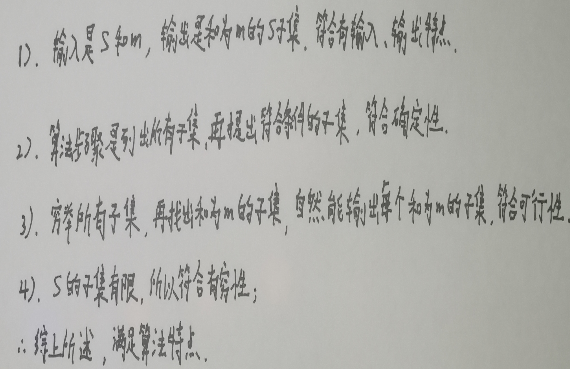 1). 输入是S和m，输出是和为m的S子集，符合有输入、输出特点.
2). 算法步骤是列出所有子集，再找出符合条件的子集，符合确定性.
3). 穷举所有子集，再找出和为m的子集，自然能输出每个和为m的子集，符合可行性.
4). S的子集有限，所以符合有穷性；
∴综上所述，满足算法特点.